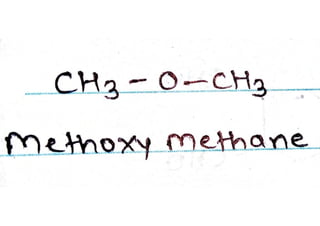 CH₃ – O – CH₃
Methoxy Methane